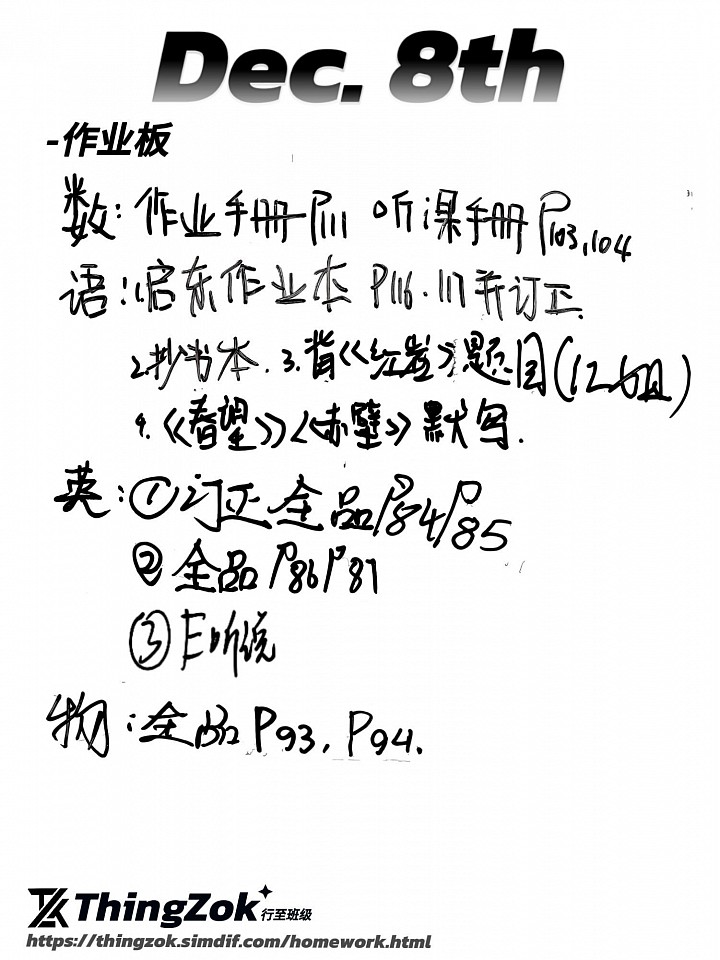 Dec. 8th
-作业板
数: 作业手册P111 听课手册P103,104
语: 1.启东作业本 P116.117并订正.
2.抄书本. 3.背《红岩》题目(江姐)
4.《春望》《赤壁》默写.
英: ①订正全品P84P85
② 全品 P86P87
③ E听说
物: 全品 P93, P94.
ThingZok 行至班级
https://thingzok.simdif.com/homework.html